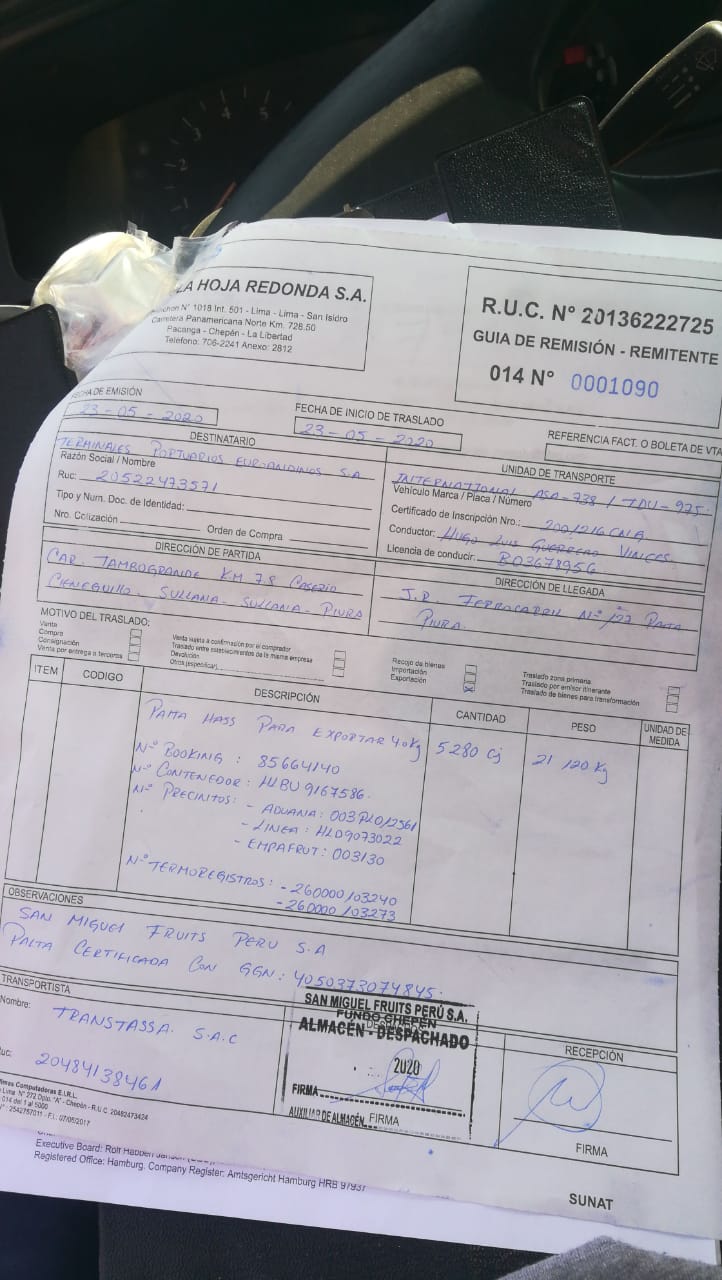 LA HOJA REDONDA S.A.
N° 1018 Int. 501 - Lima - Lima - San Isidro
Carretera Panamericana Norte Km. 728.50
Pacanga - Chepén - La Libertad
Teléfono: 706-2241 Anexo: 2812
R.U.C. N° 20136222725
GUIA DE REMISIÓN - REMITENTE
014 N° 0001090
FECHA DE EMISIÓN
23-05-2020
FECHA DE INICIO DE TRASLADO
23-05-2020
REFERENCIA FACT. O BOLETA DE VTA
DESTINATARIO
TERMINALES PORTUARIOS EUROANDINOS S.A
Razón Social / Nombre
Ruc: 20522473571
Tipo y Num. Doc. de Identidad:
Nro. Cotización Orden de Compra
UNIDAD DE TRANSPORTE
INTERNATIONAL ASA-738 / TDU-975
Vehículo Marca / Placa / Número
Certificado de Inscripción Nro.:
Conductor: HUGO LUIS GUERRERO VINCES
Licencia de conducir: B03678956
DIRECCIÓN DE PARTIDA
CAR. TAMBOGRANDE KM 7.8 CASERIO
CIENEGUILLO. SULLANA - SULLANA - PIURA
DIRECCIÓN DE LLEGADA
J.R FERROCARRIL N° 127 PAITA
PIURA.
MOTIVO DEL TRASLADO:
Venta
Compra
Consignación
Venta por entrega a terceros
Venta sujeta a confirmación por el comprador
Traslado entre establecimientos de la misma empresa
Devolución
Otros (especificar)
Recojo de bienes
Importación
Exportación
Traslado zona primaria
Traslado por emisor itinerante
Traslado de bienes para transformación
ITEM CODIGO DESCRIPCIÓN CANTIDAD PESO UNIDAD DE MEDIDA
PALTA HASS PARA EXPORTAR 4.0Kg 5280 Cj 21 120 Kg
N° BOOKING : 85664140
N° CONTENEDOR: HLBU 9167586.
N° PRECINTOS: - ADUANA: 003PLO12561
- LINEA: HLD9073022
- EMPAFRUT: 003130
N° TERMOREGISTROS: - 260000/03240
- 260000/03273
OBSERVACIONES
SAN MIGUEL FRUITS PERU S.A
PALTA CERTIFICADA CON GGN: 4050373074845.
TRANSPORTISTA
Nombre: TRANSTASSA. S.A.C
Ruc: 20484138461
SAN MIGUEL FRUITS PERÚ S.A.
FUNDO CHEPÉN
ALMACÉN - DESPACHADO
2020
FIRMA
AUXILIAR DE ALMACÉN
FIRMA
RECEPCIÓN
FIRMA
Computadoras E.I.R.L.
Lima N° 272 Dpto. "A" - Chepén - R.U.C. 20482473424
014 del 1 al 5000
N°: 2542757011 - F.I.: 07/06/2017
SUNAT
Executive Board: Rolf Habben Jansen
Registered Office: Hamburg. Company Register: Amtsgericht Hamburg HRB 97937